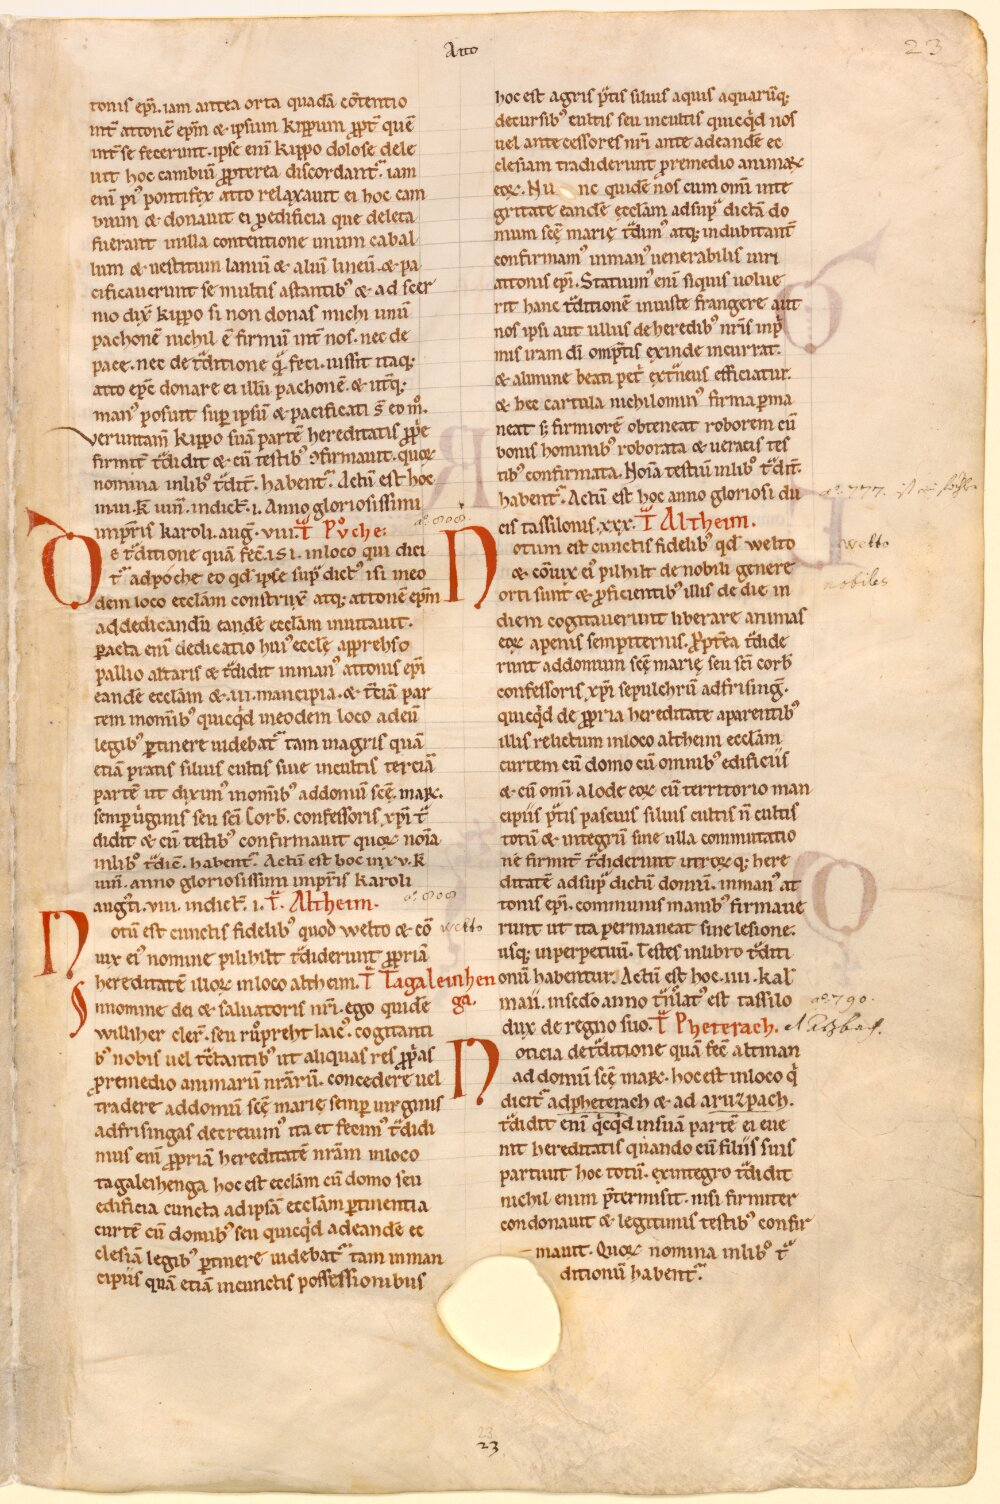 Atto
23
tonis ep̄i. iam antea orta quadā cōtentio
int̄ attonē ep̄m & ipsum kippum ꝓpt̄ quē
int̄ se fecerunt. ipse enī kippo dolose dele
uit hoc cambiū ꝓpterea discordant᷑. iam
enī pi᷒ pontifex atto relaxauit ei hoc cam
bium & donauit ei ꝓ edificia que deleta
fuerant in illa contentione unum cabal
lum & uestitum laniū & aliū lineū. & pa
cificauerunt se multis astantib᷒ & ad secr̄
mo dix̄ kippo si non donas michi unū
pachonē nichil ē firmū int̄ nos. nec de
pace. nec de t̄ditione q̄ feci. iussit itaq;
atto ep̄c donare ei illū pachonē. & utq̄;
man᷒ posuit sup̄ ipsū & pacificati s̄ eo m̊.
veruntam̄ kippo suā partē hereditatis ꝓp̄e
firmit̄ t̄didit & cū testib᷒ ꝯfirmauit. quoꝝ
nomina in lib᷒ t̄dit̄. habent᷑. Actū est hoc
iniii. k̄ iun̄. indict̄. i. Anno gloriosissimi
imp̄ris karoli. auḡ. viii. T̄ Půche.
ao. 808
De t̄ditione quā fec̄. isi. in loco qui dici
t᷑ ad poche eo qd̄ ipse sup̄ dict᷒ isi in eo
dem loco ecclām construx̄ atq; attonē ep̄m
ad dedicandū eandē ecclām inuitauit.
ꝑacta enī dedicatio hui᷒ ecclę apprehso
pallio altaris & t̄didit in man᷒ attonis ep̄i
eandē ecclām & .iii. mancipia. & t̄ciā par
tem in om̄ib᷒ quicq̄d in eodem loco ad eū
legib᷒ ꝑtinere uidebat᷑ tam in agris quā
etiā pratis siluis cultis siue incultis terciā
partē ut dixim᷒ in om̄ib᷒ ad domū scę̄ maꝛ.
semp̄ uirginis seu sc̄i Corb̄. confessoris xp̄i t̄
didit & cū testib᷒ confirmauit quoꝝ noīa
in lib᷒ t̄dic̄. habent᷑. Actū est hoc in xv. k̄
iun̄. anno gloriosissimi imp̄ris karoli
aug᷒ti. viii. indict̄. i. T̄. Altheim.
ao. 808
Notū est cunctis fidelib᷒ quod welto & cō
welto
iux ei᷒ nomine pilihilt t̄diderunt ꝓpriā
hereditatē illoꝝ in loco altheim. T̄ Tagaleinhen
ga.
In nomine dei & saluatoris nr̄i. ego quidē
williher cler̄. seu růpreht laic᷒. cogitanti
b᷒ nobis uel t̄ctantib᷒ ut aliquas res ꝓp̄as
ꝓ remedio animarū nr̄arū. concedere uel
tradere ad domū scę̄ marię semp̄ uirginis
ad frisingas decreuim᷒ ita et fecim᷒ t̄didi
mus enī ꝓpriā hereditatē nr̄am in loco
tagaleihenga hoc est ecclām cū domo seu
edificia cuncta ad ipsā ecclām ꝑtinentia
curtē cū domib᷒ seu quicq̄d ad eandē ec
clesiā legib᷒ ꝑtinere uidebat᷑ tam in man
cipiis quā etiā in cunctis possessionibus
hoc est agris p̄tis siluis aquis aquarūq;
decursib᷒ cultis seu incultis quicq̄d nos
uel antecessores nr̄i ante ad eandē ec
clesiam tradiderunt ꝓ remedio animaꝝ
eoꝝ. Nunc quidē nos cum om̄i inte
gritate eandē ecclām ad sup᷑ dictā do
mum scę̄ marię t̄dim᷒ atq; indubitant̄
confirmam᷒ in man᷒ uenerabilis uiri
attonis ep̄i. Statuim᷒ enī siquis uolue
rit hanc t̄ditionē iniuste frangere aut
nos ipsi aut ullus de heredib᷒ nr̄is inp̄
mis iram dī omp̄tis exinde incurrat.
& a limine beati pet̄ ext̄neus efficiatur.
& hec cartula nichilomin᷒ firma ꝑma
neat s; firmiorē obteneat roborem cū
bonis hominib᷒ roborata & ueracis tes
tib᷒ confirmata. Noīa testiū in lib᷒ t̄dit̄.
habent᷑. Actū est hoc anno gloriosi du
cis tassilonis. xxx. T̄ Altheim.
ao. 777.
Notum est cunctis fidelib᷒ qd̄ welto
welto
& cōiux ei᷒ pilhilt de nobili genere
nobiles
orti sunt & ꝓficientib᷒ illis de die in
diem cogitauerunt liberare animas
eoꝝ a penis sempiternis. ꝓpt̄ea t̄dide
runt ad domum scę̄ marię seu sc̄i corb̄
confessoris xp̄i sepulchrū ad frisinḡ.
quicq̄d de ꝓpria hereditate a parentib᷒
illis relictum in loco altheim ecclām
curtem cū domo cū omnib᷒ edificiis
& cū om̄i alode eoꝝ cū territorio man
cipiis p̄tis pascuis siluis cultis n̄ cultis
totū & integrū sine ulla commutatio
ne firmit̄ t̄diderunt utroꝝ q; here
ditatē ad sup᷑ dictū domū. in man᷒ at
tonis ep̄i. communis manib᷒ firmaue
runt ut ita permaneat sine lesione.
usq; in perpetuū. Testes in libro t̄diti
onū habentur. Actū est hoc. iiii. kal̄
maii. in sc̄do anno t̄nslat᷒ est tassilo
ao. 790.
dux de regno suo. T̄ Pheterach.
Noticia de t̄ditione quā fec̄ altman
ad domū scę̄ maꝛ. hoc est in loco q̄
dicit᷑ ad pheterach & ad aruzpach.
t̄didit enī q̄cq̄d in suā partē ei eue
nit hereditatis quando cū filiis suis
partiuit hoc totū. ex integro t̄didit
nichil enim p̄termisit. nisi firmiter
condonauit & legitimis testib᷒ confir
mauit. Quoꝝ nomina in lib᷒ t̄
ditionū habent᷑.
23
23